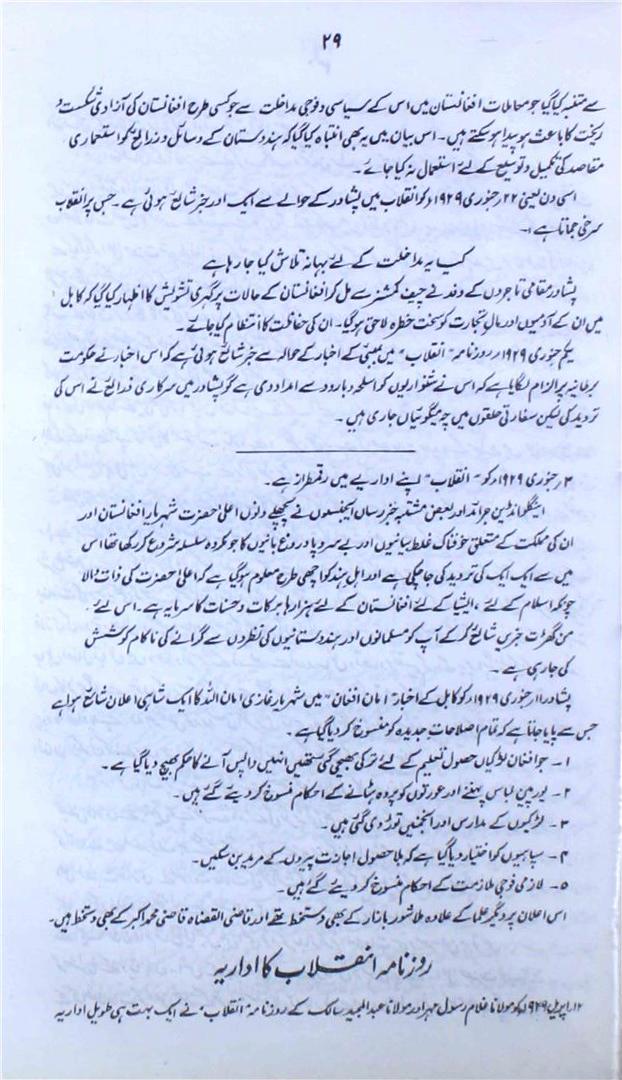 ۲۹
سے متنبہ کیا گیا جو معاملات افغانستان میں اس کے سیاسی و فوجی مداخلت سے جو کسی طرح افغانستان کی آزادی شکست و
ریخت کا باعث ہو پیدا ہو سکتے ہیں۔ اس بیان میں یہ بھی انتباہ کیا گیا کہ ہندوستان کے وسائل و ذرائع کو استعماری
مقاصد کی تکمیل و توسیع کے لئے استعمال نہ کیا جائے۔
اسی دن یعنی ۲۲ جنوری ۱۹۲۹ء کو انقلاب میں پشاور کے حوالے سے ایک اور خبر شایع ہوئی ہے۔ جس پر انقلاب
سرخی جماتا ہے:۔
کب یہ مداخلت کے لئے بہانہ تلاش کیا جا رہا ہے
پشاور مقامی تاجروں کے وفد نے چیف کمشنر سے مل کر افغانستان کے حالات پر گہری تشویش کا اظہار کیا گیا کہ کابل
میں ان کے آدمیوں اور مال تجارت کو سخت خطرہ لاحق ہو گیا۔ ان کی حفاظت کا انتظام کیا جائے۔
یکم جنوری ۱۹۲۹ء روزنامہ "انقلاب" میں بمبئی کے اخبار کے حوالہ سے خبر شائع ہوئی ہے کہ اس اخبار نے حکومت
برطانیہ پر الزام لگایا ہے کہ اس نے شنواریوں کو اسلحہ و بارود سے امداد دی ہے گو پشاور میں سرکاری ذرائع نے اس کی
تردید کی لیکن سفارتی حلقوں میں چہ میگوئیاں جاری ہیں۔
۳ جنوری ۱۹۲۹ء کو "انقلاب" اپنے اداریے میں رقمطراز ہے۔
اینگلو انڈین جرائد اور بعض مشتبہ خبر رساں ایجنسیوں نے پچھلے دنوں اعلیٰ حضرت شہریار افغانستان اور
ان کی مملکت کے متعلق خوفناک غلط بیانیوں اور بے سروپا دروغ بافیوں کا جو مکروہ سلسلہ شروع کر رکھا تھا اس
میں سے ایک ایک کی تردید کی جا چکی ہے اور اہل ہند کو اچھی طرح معلوم ہو گیا ہے کہ اعلیٰ حضرت کی ذات والا
چونکہ اسلام کے لئے، ایشیا کے لئے افغانستان کے لئے ہزارہا برکات و حسنات کا سرمایہ ہے۔ اس لئے
من گھڑت خبریں شائع کر کے آپ کو مسلمانوں اور ہندوستانیوں کی نظروں سے گرانے کی ناکام کوشش
کی جا رہی ہے۔
پشاور ۱۱ جنوری ۱۹۲۹ء کو کابل کے اخبار "امان افغان" میں شہریار غازی امان اللہ کا ایک شاہی اعلان شائع ہوا ہے
جس سے پایا جاتا ہے کہ تمام اصلاحات جدیدہ کو منسوخ کر دیا گیا ہے۔
۱۔ جو افغان لڑکیاں حصول تعلیم کے لئے ترکی بھیجی گئی تھیں انہیں واپس آنے کا حکم بھیج دیا گیا ہے۔
۲۔ یورپین لباس پہننے اور عورتوں کو پردہ ہٹانے کے احکام منسوخ کر دیئے گئے ہیں۔
۳۔ لڑکیوں کے مدارس اور انجمنیں توڑ دی گئی ہیں۔
۴۔ سپاہیوں کو اختیار دیا گیا ہے کہ بلا حصول اجازت پیروں کے مرید بن سکیں۔
۵۔ لازمی فوجی ملازمت کے احکام منسوخ کر دیئے گئے ہیں۔
اس اعلان پر دیگر علما کے علاوہ ملا شور بازار کے بھی دستخط تھے اور قاضی القضاہ قاضی محمد اکبر کے بھی دستخط ہیں۔
روزنامہ انقلاب کا اداریہ
۱۲ اپریل ۱۹۲۹ء کو مولانا غلام رسول مہر اور مولانا عبدالمجید سالک کے روزنامہ "انقلاب" نے ایک بہت ہی طویل اداریہ